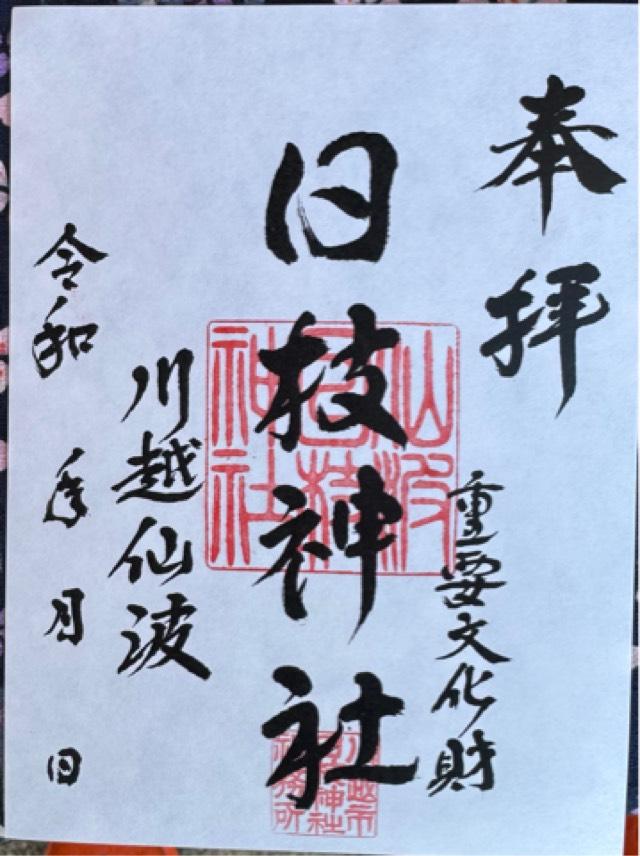 奉拝
重要文化財
日枝神社
仙波日枝神社
川越市日枝神社社務所
川越仙波
令和 年 月 日